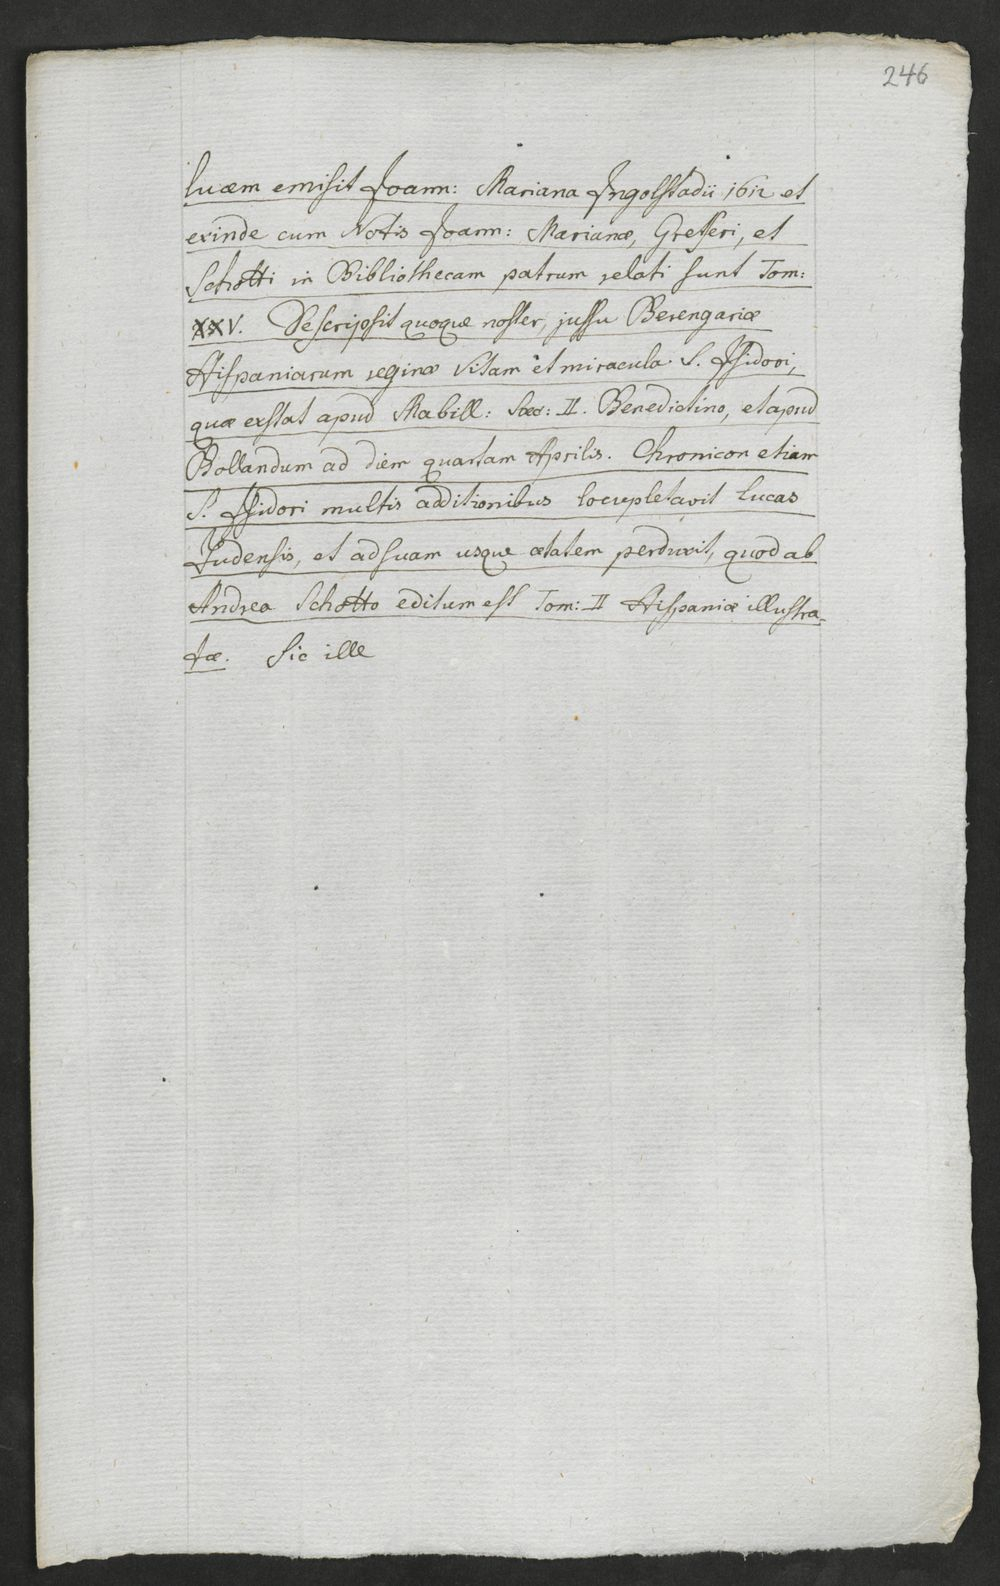 246
lucem emisit Joann: Mariana Ingolstadii 1612 et
exinde cum Notis Joann: Marianæ, Gretseri, et
Schotti in Bibliothecam patrum relati sunt Tom:
XXV. Descripsit quoque noster, jussu Berengariæ
Hispaniarum reginæ Vitam et miracula S. Isidori,
quæ exstat apud Mabill: Sæc: II. Benedictino, et apud
Bollandum ad diem quartam Aprilis. Chronicon etiam
S. Isidori multis additionibus locupletavit Lucas
Tudensis, et ad suam usque ætatem perduxit, quod ab
Andrea Schotto editum est Tom: II Hispaniæ illustra-
tæ. Sic ille